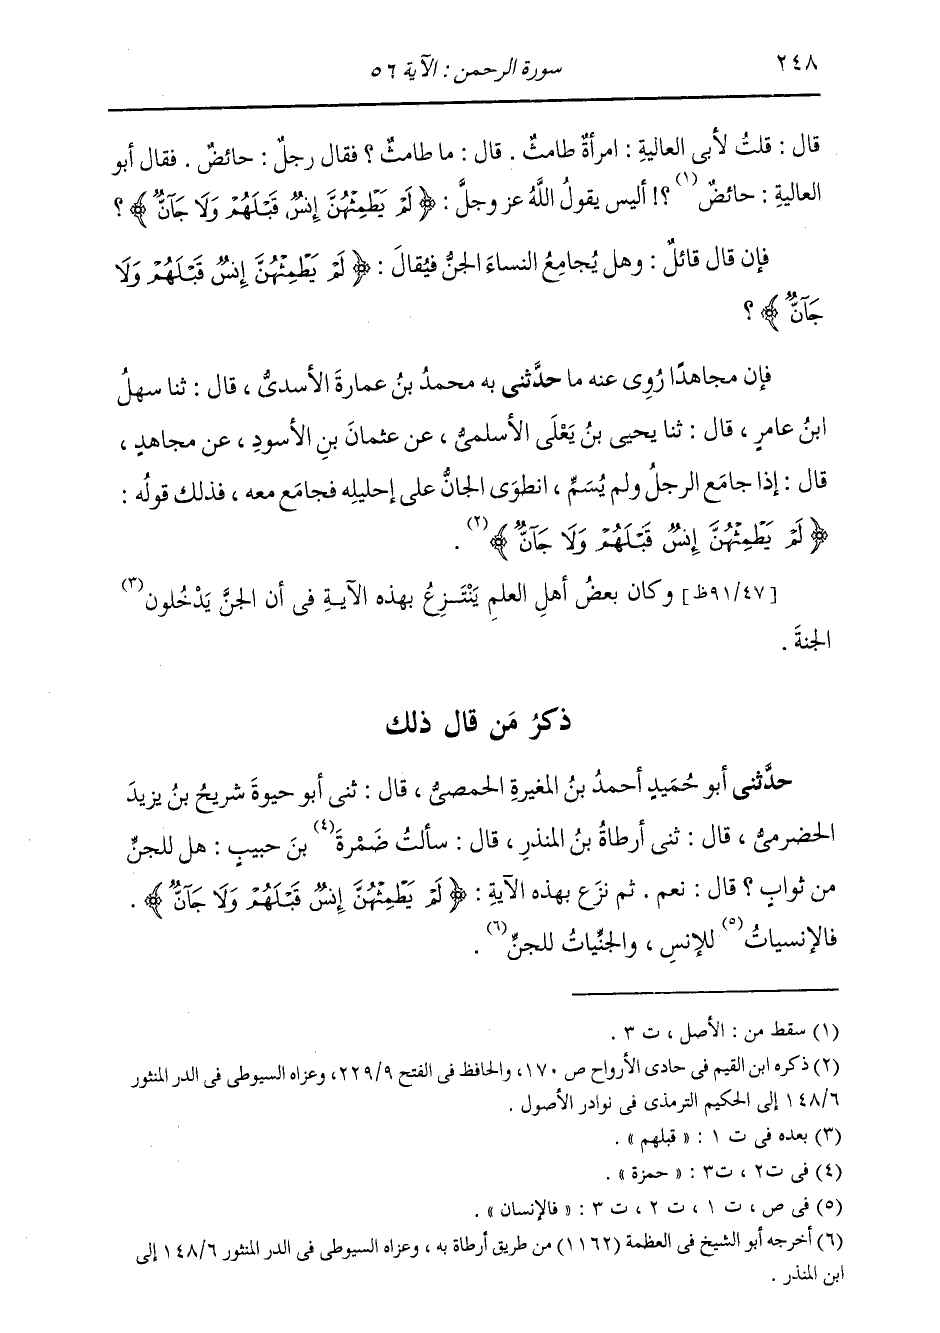 ٢٤٨
سورة الرحمن : الآية ٥٦
قال : قلتُ لأبى العاليةِ : امرأةٌ طامثٌ . قال : ما طامثٌ ؟ فقال رجلٌ : حائضٌ . فقال أبو
العاليةِ : حائضٌ(١) ؟! أليس يقولُ اللَّهُ عز وجلَّ : ﴿ لَمْ يَطْمِثْهُنَّ إِنسٌ قَبْلَهُمْ وَلَا جَآنٌّ ﴾ ؟
فإن قال قائلٌ : وهل يُجامِعُ النساءَ الجنُّ فيُقالَ : ﴿ لَمْ يَطْمِثْهُنَّ إِنسٌ قَبْلَهُمْ وَلَا
جَآنٌّ ﴾ ؟
فإن مجاهدًا رُوِى عنه ما حدَّثنى به محمدُ بنُ عمارةَ الأسدىُّ ، قال : ثنا سهلُ
ابنُ عامرٍ ، قال : ثنا يحيى بنُ يَعْلَى الأسلمىُّ ، عن عثمانَ بنِ الأسودِ ، عن مجاهدٍ ،
قال : إذا جامَع الرجلُ ولم يُسَمِّ ، انطوَى الجانُّ على إحليلِه فجامَع معه ، فذلك قولُه :
﴿ لَمْ يَطْمِثْهُنَّ إِنسٌ قَبْلَهُمْ وَلَا جَآنٌّ ﴾(٢) .
[٩١/٤٧ظ] وكان بعضُ أهلِ العلمِ يَنْتَـزِعُ بهذه الآيـةِ فى أن الجنَّ يَدْخُلون(٣)
الجنةَ .
ذكرُ مَن قال ذلك
حدَّثنى أبو حُمَيدٍ أحمدُ بنُ المغيرةِ الحمصىُّ ، قال : ثنى أبو حيوةَ شريحُ بنُ يزيدَ
الحضرمىُّ ، قال : ثنى أرطاةُ بنُ المنذرِ ، قال : سألتُ ضَمْرةَ(٤) بنَ حبيبٍ : هل للجنِّ
من ثوابٍ ؟ قال : نعم . ثم نزَع بهذه الآيةِ : ﴿ لَمْ يَطْمِثْهُنَّ إِنسٌ قَبْلَهُمْ وَلَا جَآنٌّ ﴾ .
فالإنسياتُ(٥) للإنسِ ، والجنِّياتُ للجنِّ(٦) .
(١) سقط من : الأصل ، ت ٣ .
(٢) ذكره ابن القيم فى حادى الأرواح ص ١٧٠، والحافظ فى الفتح ٢٢٩/٩، وعزاه السيوطى فى الدر المنثور
١٤٨/٦ إلى الحكيم الترمذى فى نوادر الأصول .
(٣) بعده فى ت ١ : « قبلهم » .
(٤) فى ت٢ ، ت٣ : « حمزة » .
(٥) فى ص ، ت ١ ، ت ٢ ، ت ٣ : « فالإنسان » .
(٦) أخرجه أبو الشيخ فى العظمة (١١٦٢) من طريق أرطاة به ، وعزاه السيوطى فى الدر المنثور ١٤٨/٦ إلى
ابن المنذر .